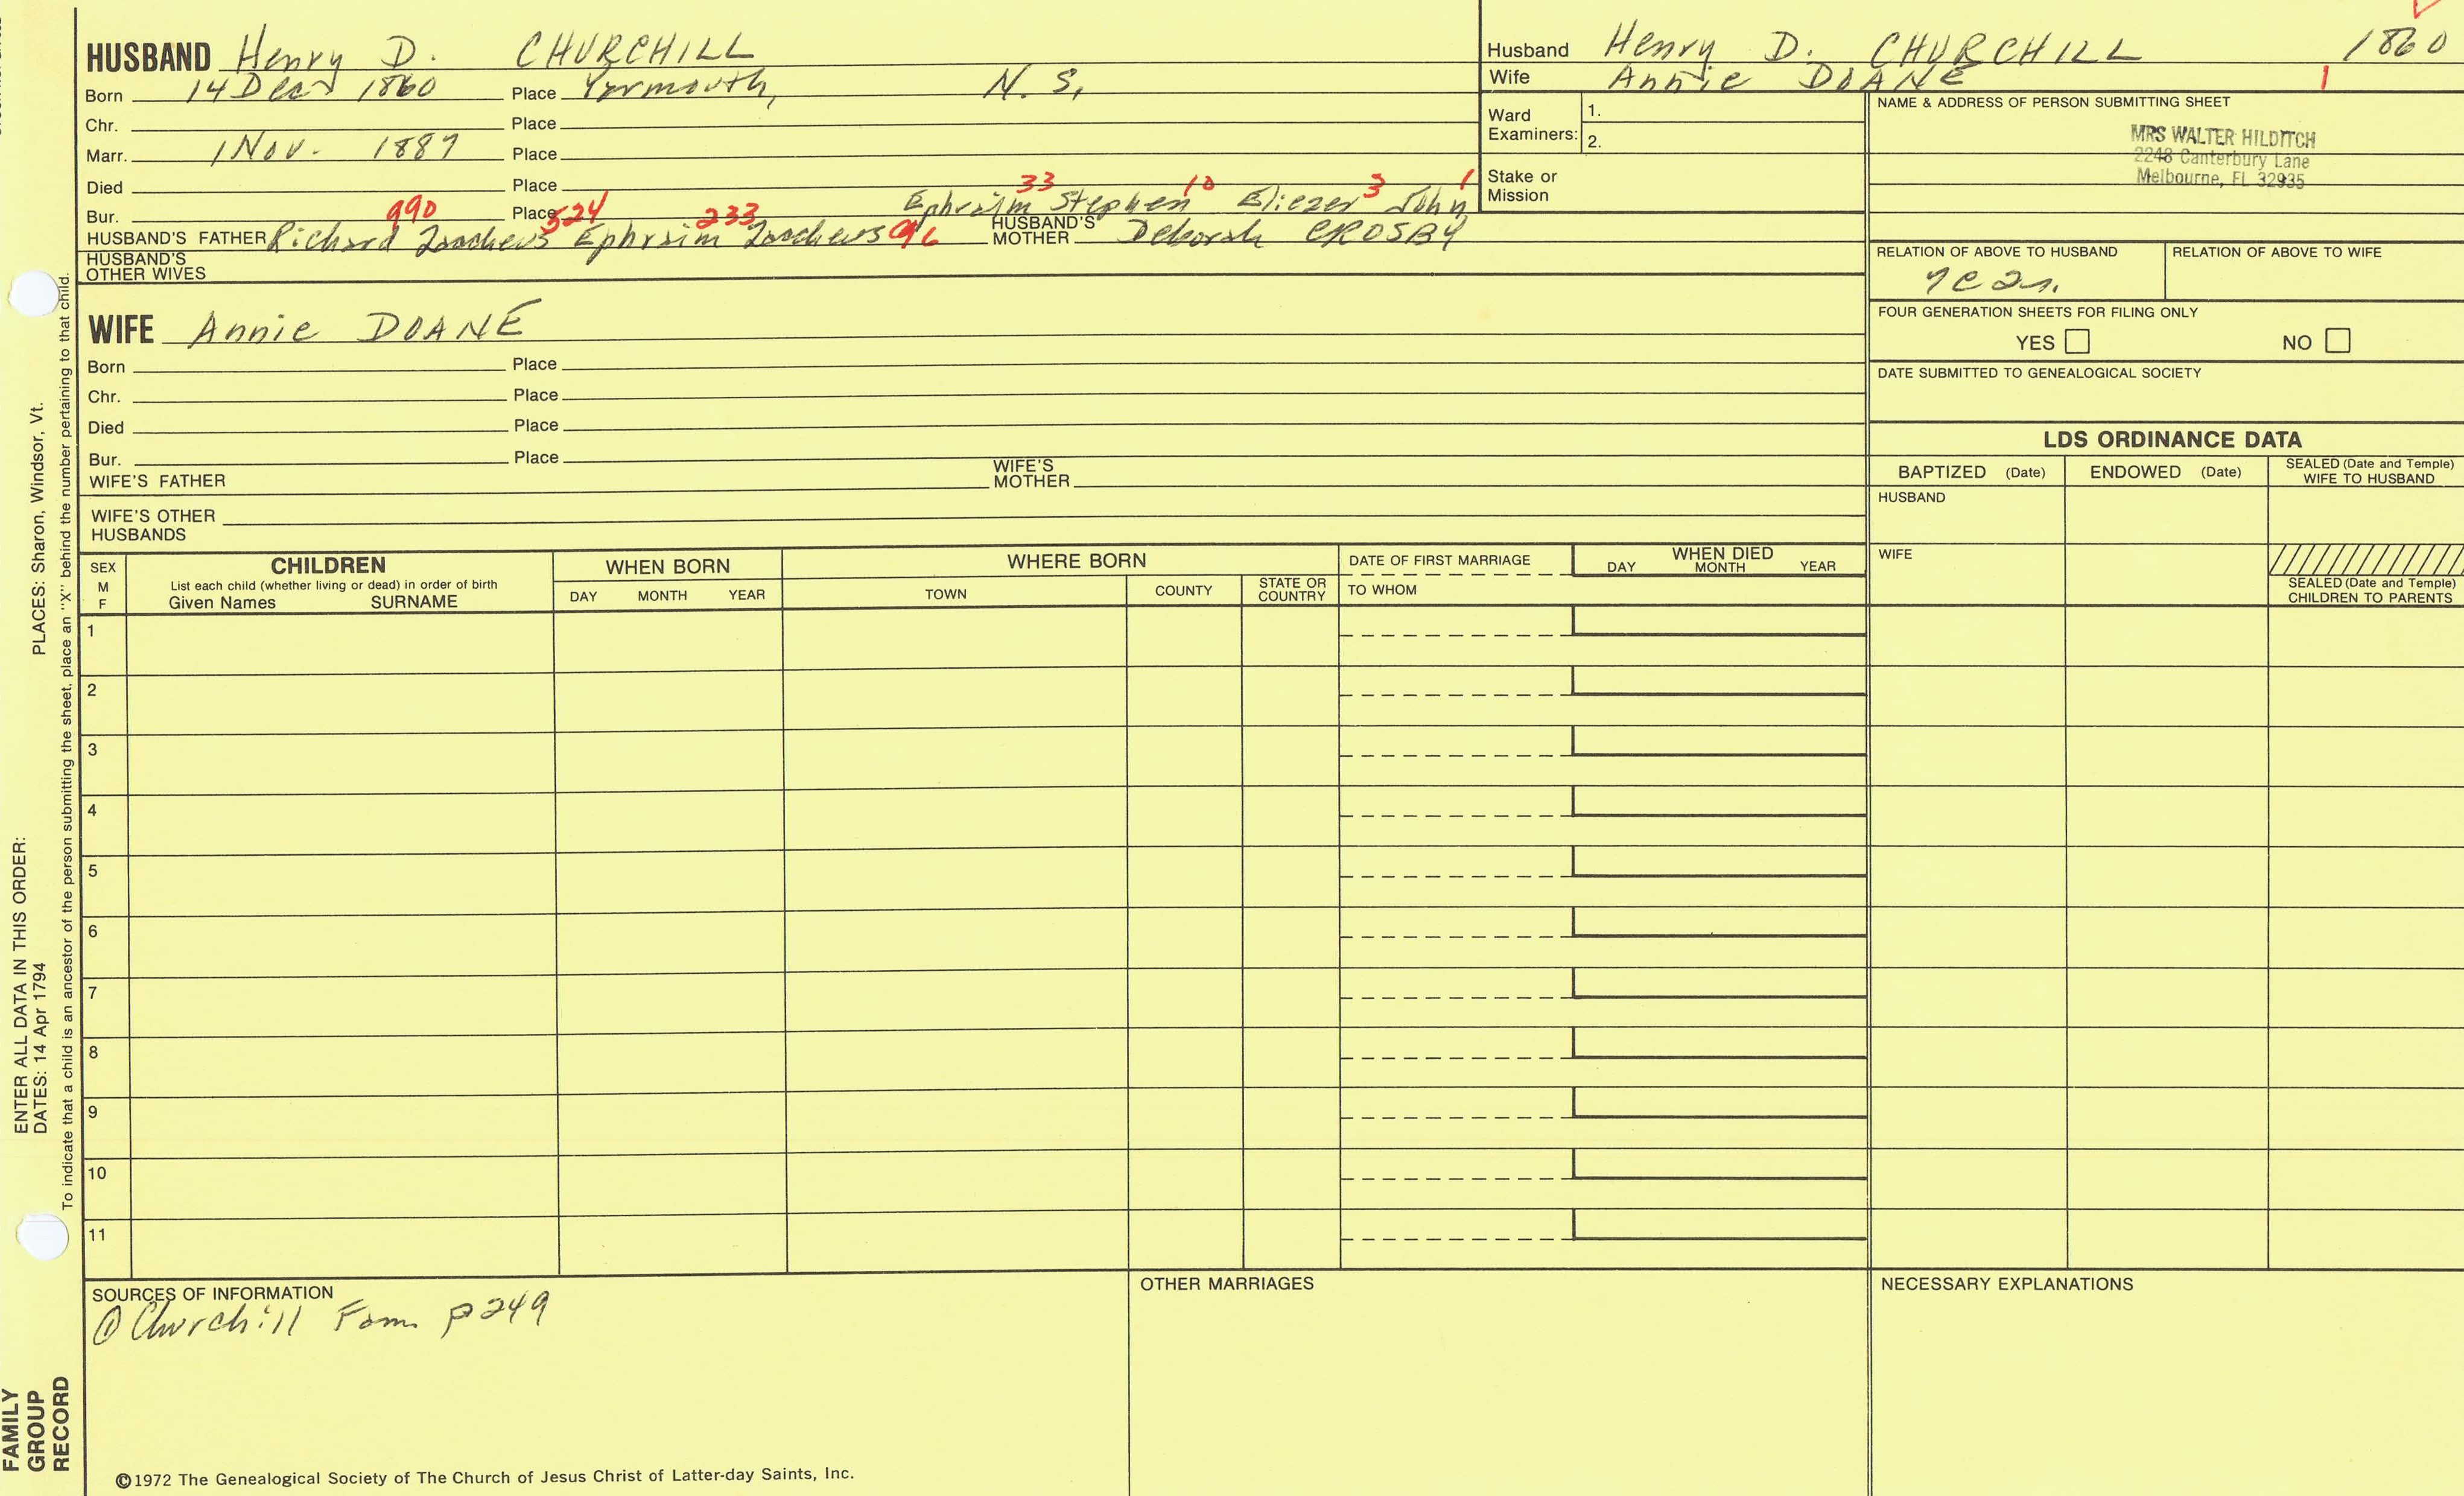 HUSBAND Henry D. CHURCHILL
Born 14 Dec 1860 Place Yarmouth, N. S,
Chr. Place
Marr. 1 Nov. 1889 Place
Died Place
Bur. Place
990 524 233 96 33 10 3 1
Ephraim Stephen Eliezer John
HUSBAND'S FATHER Richard Zaccheus Ephraim Zaccheus HUSBAND'S MOTHER Deborah CROSBY
HUSBAND'S OTHER WIVES
Husband Henry D. CHURCHILL 1860
Wife Annie DOANE 1
Ward Examiners: 1.
2.
Stake or Mission
NAME & ADDRESS OF PERSON SUBMITTING SHEET
MRS WALTER HILDITCH
2248 Canterbury Lane
Melbourne, FL 32935
RELATION OF ABOVE TO HUSBAND RELATION OF ABOVE TO WIFE
FOUR GENERATION SHEETS FOR FILING ONLY
YES NO
DATE SUBMITTED TO GENEALOGICAL SOCIETY
WIFE Annie DOANE
Born Place
Chr. Place
Died Place
Bur. Place
WIFE'S FATHER WIFE'S MOTHER
WIFE'S OTHER HUSBANDS
LDS ORDINANCE DATA
BAPTIZED (Date) ENDOWED (Date) SEALED (Date and Temple) WIFE TO HUSBAND
HUSBAND
WIFE
SEALED (Date and Temple) CHILDREN TO PARENTS
SEX M F
CHILDREN
List each child (whether living or dead) in order of birth
Given Names SURNAME
WHEN BORN
DAY MONTH YEAR
WHERE BORN
TOWN COUNTY STATE OR COUNTRY
DATE OF FIRST MARRIAGE
TO WHOM
WHEN DIED
DAY MONTH YEAR
1
2
3
4
5
6
7
8
9
10
11
SOURCES OF INFORMATION
① Churchill Fam. p 249
OTHER MARRIAGES
NECESSARY EXPLANATIONS
©1972 The Genealogical Society of The Church of Jesus Christ of Latter-day Saints, Inc.
FAMILY GROUP RECORD
ENTER ALL DATA IN THIS ORDER:
DATES: 14 Apr 1794 PLACES: Sharon, Windsor, Vt.
To indicate that a child is an ancestor of the person submitting the sheet, place an "X" behind the number pertaining to that child.